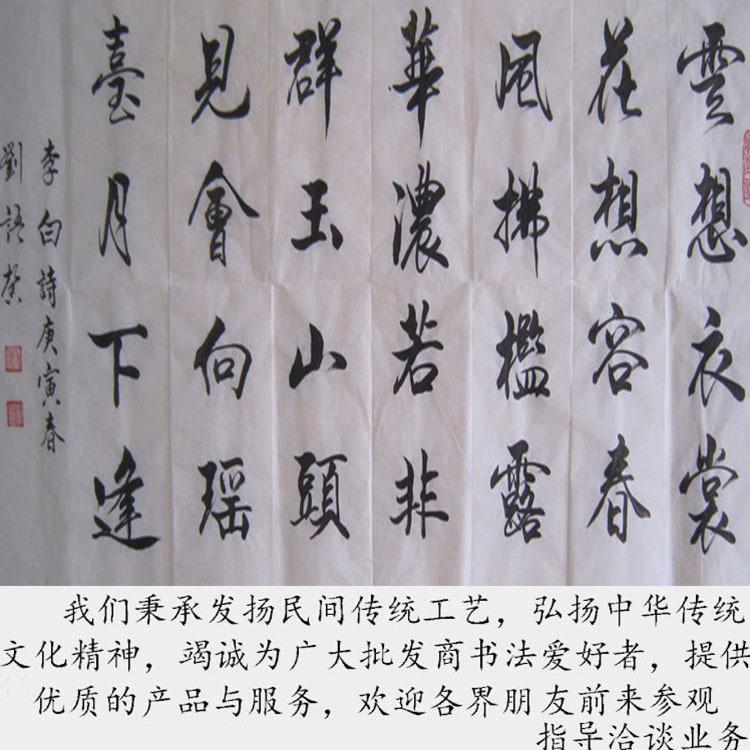 雲想衣裳
花想容春
風拂檻露
華濃若非
群玉山頭
見會向瑶
臺月下逢
李白詩庚寅春
劉
我们秉承发扬民间传统工艺，弘扬中华传统
文化精神，竭诚为广大批发商书法爱好者，提供
优质的产品与服务，欢迎各界朋友前来参观
指导洽谈业务